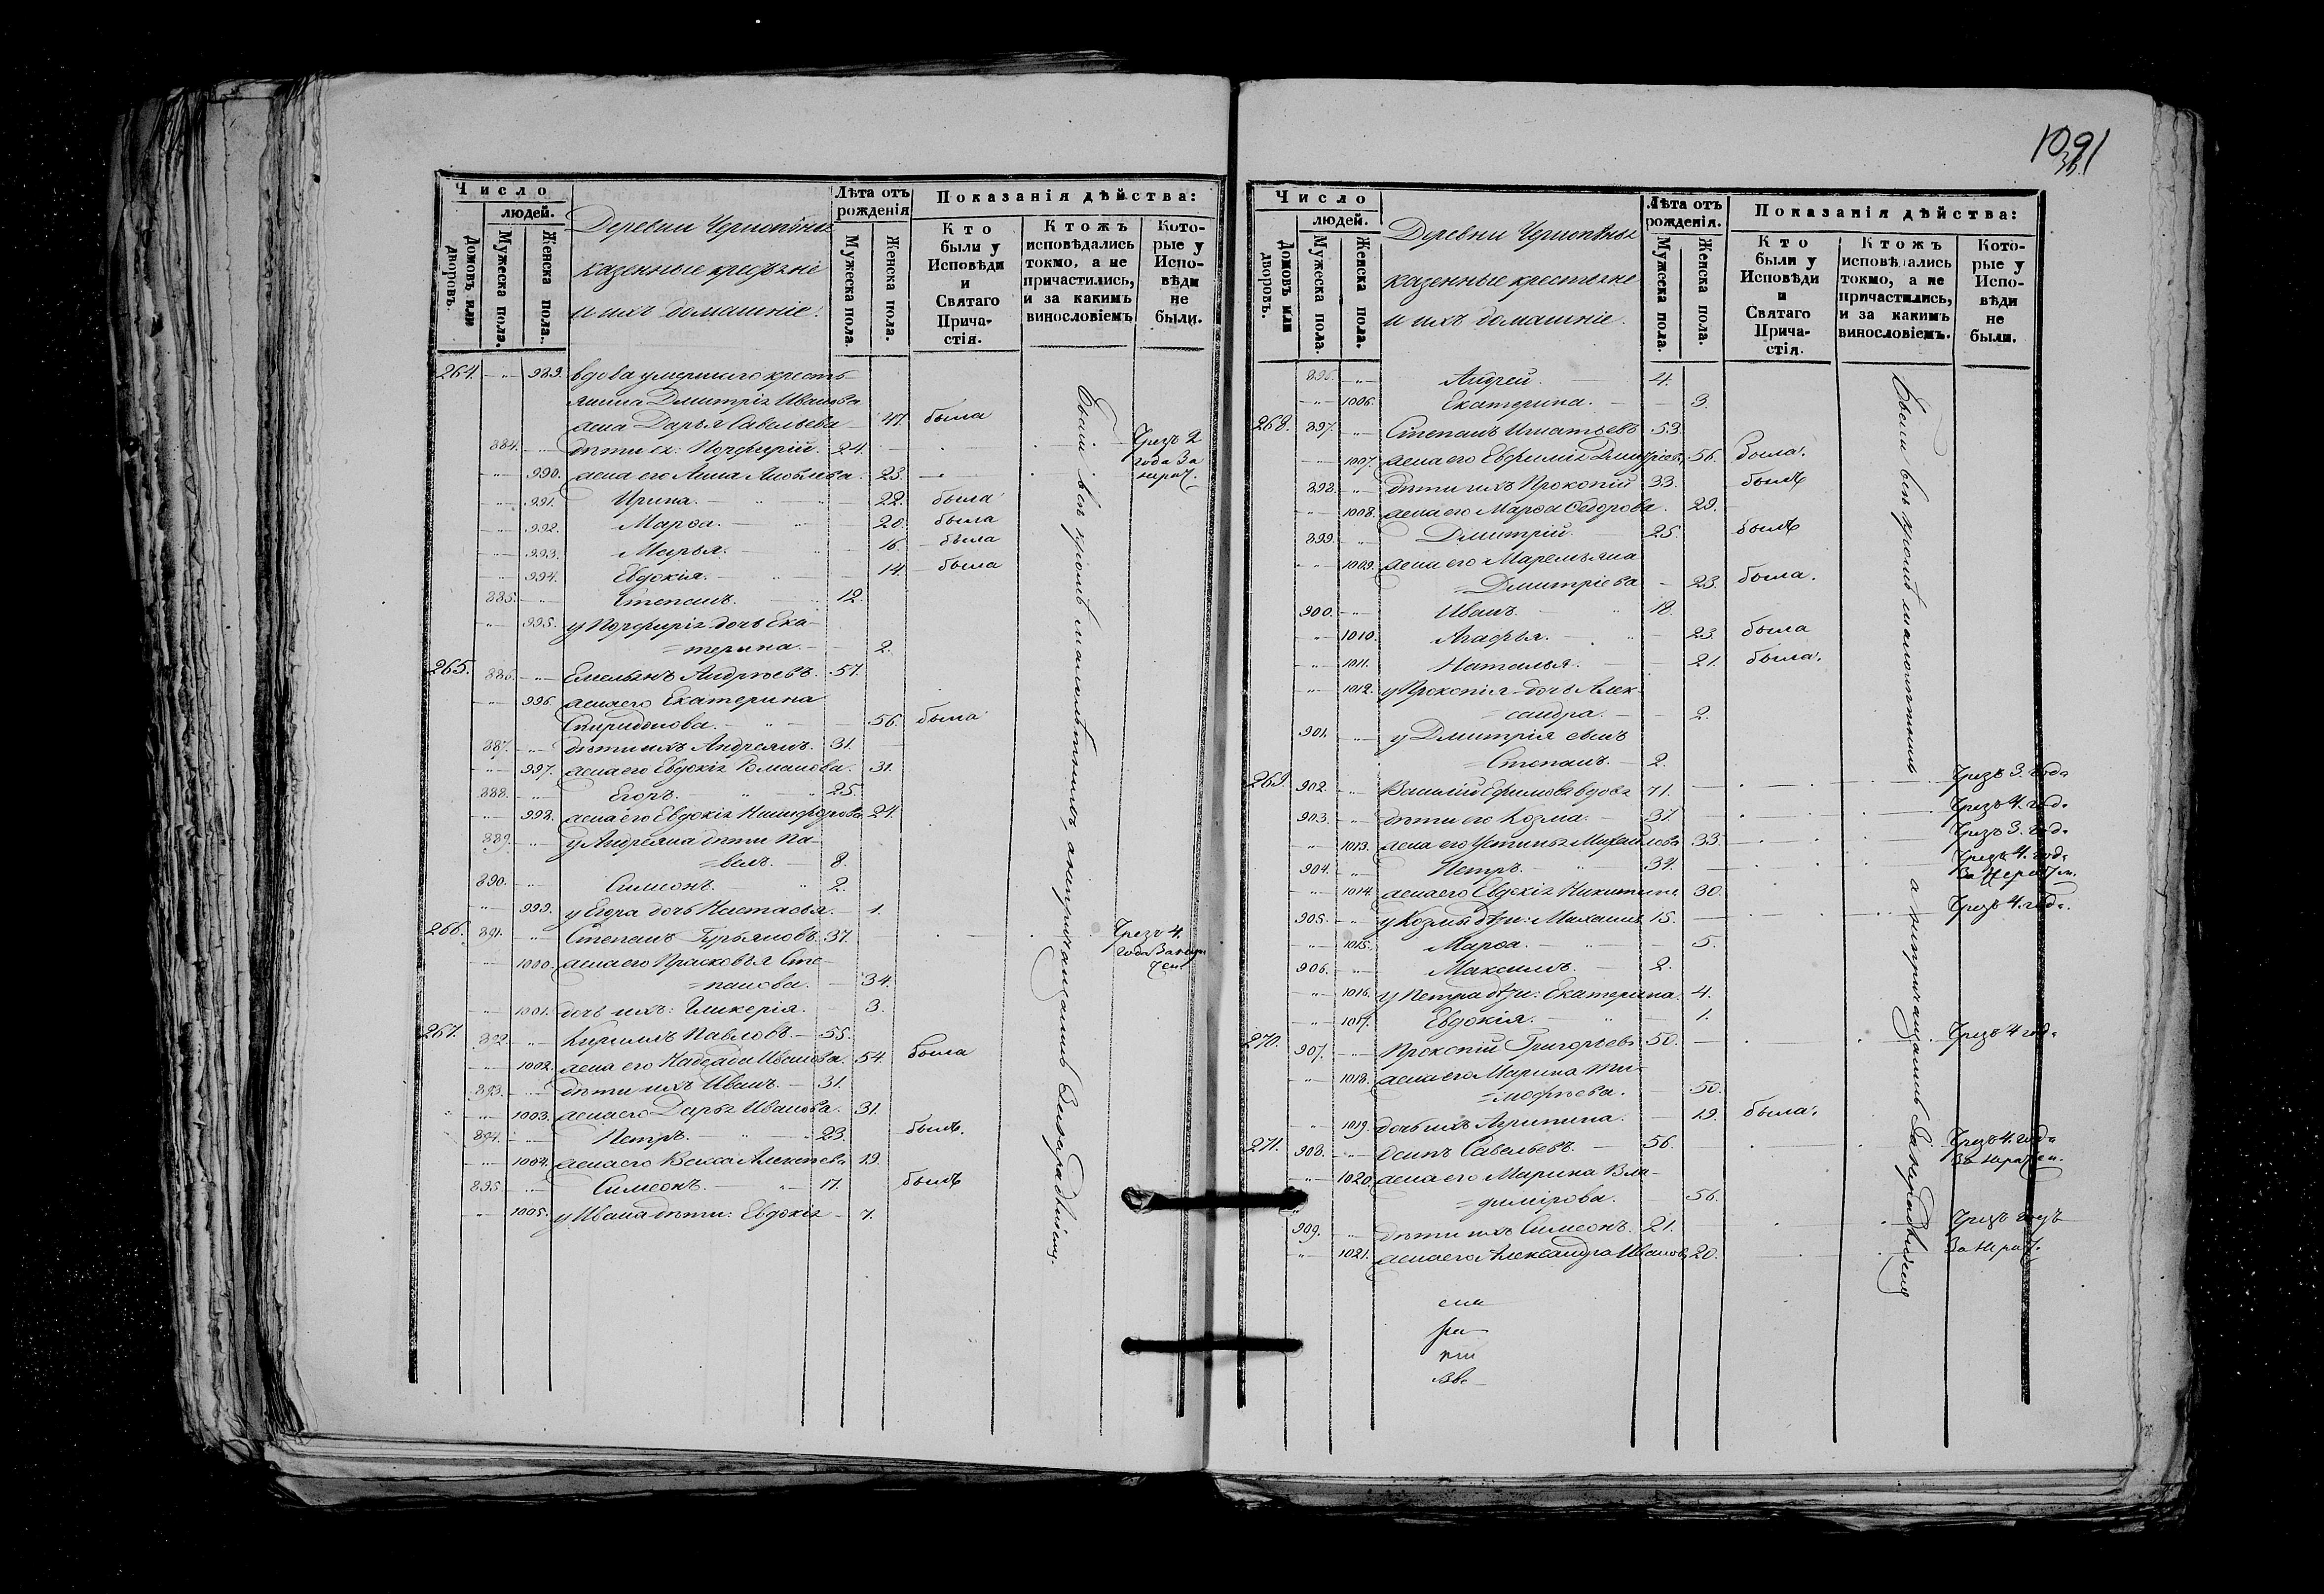 Число
людей.
Домовъ или дворовъ.
Мужеска пола.
Женска пола.
Деревни
казенные крестьяне
и ихъ домашніе.
Лѣта отъ рожденія
Мужеска пола.
Женска пола.
Показанія дѣйства:
Кто были у Исповѣди и Святаго Причастія.
Ктожъ исповѣдались токмо, а не причастились, и за какимъ винословіемъ
Которые у Исповѣди не были.
264. 989. вдова умершаго кресть-
янина Дмитрія Иванова
жена Дарья Савельева 47. была
884. дѣти ея: Порфирій. 24. Чрезъ 2 года за
990. жена его Анна 23.
991. Ирина. 22. была
992. Марѳа. 20. была
993. Марья. 16. была
994. Евдокія. 14. была
885. Степанъ. 12.
995. у Порфирія дочь Ека-
=терина. 2.
265. 886. Емельянъ Андреевъ. 57.
996. жена его Екатерина
Спиридонова. 56. была
887. дѣти ихъ Андреянъ. 31.
997. жена его Евдокія Романова. 31.
888. Егоръ. 25.
998. жена его Евдокія Никифорова 24.
889. у Андреяна дѣти Па-
=велъ. 8.
890. Симеонъ. 2.
999. у Егора дочь Настасья. 1.
266. 891. Степанъ Гурьяновъ. 37. Чрезъ 4. года
1000. жена его Прасковья Сте-
=панова. 34.
1001. дочь ихъ: Гликерія. 3.
267. 892. Кирилъ Павловъ. 55.
1002. жена его Надежда Иванова. 54. была
893. дѣти ихъ Иванъ. 31.
1003. жена его Дарья Иванова. 31.
894. Петръ. 23. былъ.
1004. жена его Алексѣева 19.
895. Симеонъ. 17. былъ
1005. у Ивана дѣти: Евдокія 7.
Были всѣ кромѣ малолѣтнихъ, а непричащались
1091
Число
людей.
Домовъ или дворовъ.
Мужеска пола.
Женска пола.
Деревни
казенные крестьяне
и ихъ домашніе.
Лѣта отъ рожденія.
Мужеска пола.
Женска пола.
Показанія дѣйства:
Кто были у Исповѣди и Святаго Причастія.
Ктожъ исповѣдались токмо, а не причастились, и за какимъ винословіемъ.
Которые у Исповѣди не были.
896. Андрей. 4.
1006. Екатерина. 3.
268. 897. Степанъ Игнатьевъ 53.
1007. жена его Евфимія Дмитріева 56. была.
898. дѣти ихъ Прокопій 33. былъ
1008. жена его Марѳа Ѳедорова. 29.
899. Дмитрій. 25. былъ
1009. жена его Маремьяна
=Дмитріева 23. была.
900. Иванъ. 18.
1010. Агафья. 23. была
1011. Наталья. 21. была.
1012. у Прокопія дочь Алек-
=сандра. 2.
901. у Дмитрія сынъ
=Степанъ. 2.
269. 902. Василій Ефимовъ вдовъ 71. Чрезъ 3. года
903. дѣти его Козма. 37. Чрезъ 4. года
1013. жена его Устинья Михайлова 33. Чрезъ 3. года
904. Петръ. 34. Чрезъ 4. года
1014. жена его Евдокія Никитина 30.
905. у Козмы дѣти: Михаилъ 15. Чрезъ 4. года.
1015. Марѳа. 5.
906. Максимъ. 2.
1016. у Петра дѣти: Екатерина. 4.
1017. Евдокія. 1.
270. 907. Прокопій Григорьевъ 50. Чрезъ 4 года
1018. жена его Марина Ти-
=мофѣева. 50.
1019. дочь ихъ Агрипина. 19. была.
271. 908. Осипъ Савельевъ. 56. Чрезъ 4. года
1020. жена его Марина Вла-
=димірова. 56.
909. дѣти ихъ Симеонъ. 21. Чрезъ годъ
1021. жена его Александра Иванова 20.
Были всѣ кромѣ малолѣтнихъ а непричащались